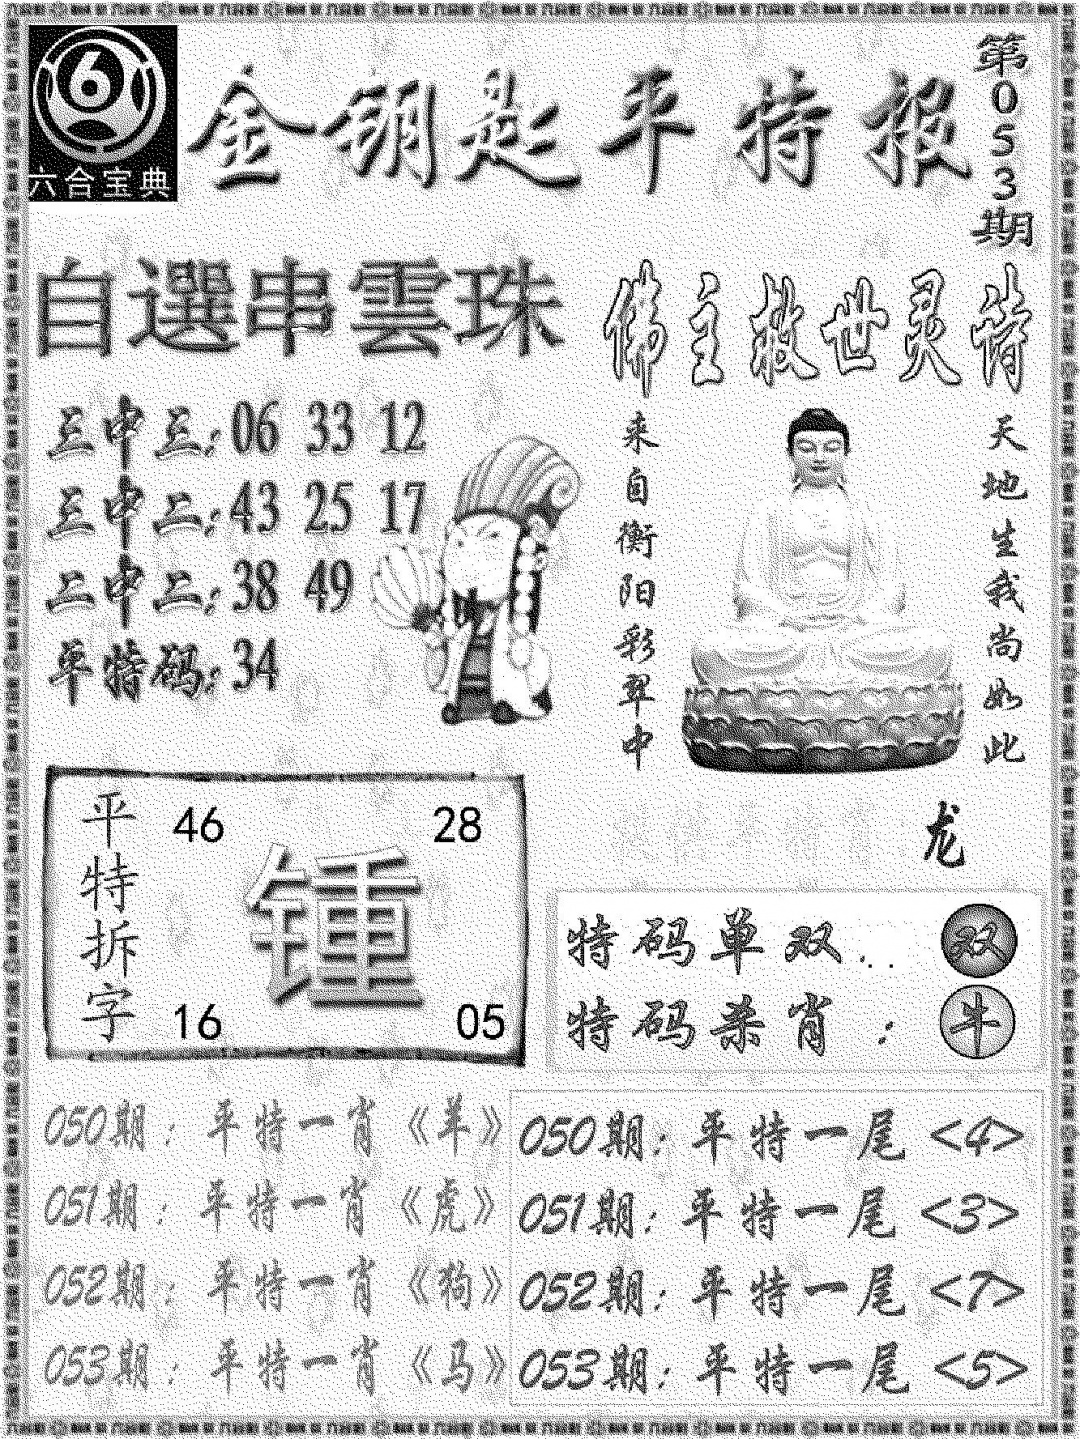 6
六合宝典
金钥匙平特报
第053期
自選串雲珠
三中三: 06 33 12
三中二: 43 25 17
二中二: 38 49
单特码: 34
佛主救世灵诗
天地生我尚如此
来自衡阳彩翠中
龙
平特拆字
46 28
锺
16 05
特码单双...双
特码杀肖:牛
050期:平特一肖《羊》
051期:平特一肖《虎》
052期:平特一肖《狗》
053期:平特一肖《马》
050期:平特一尾<4>
051期:平特一尾<3>
052期:平特一尾<7>
053期:平特一尾<5>